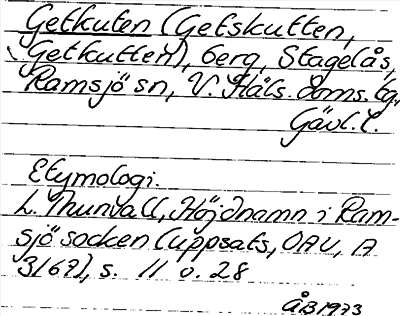 Getkuten (Getskutten,
Getkutten), berg, Stagelås,
Ramsjö sn, V. Häls. doms. tg,
Gävl. l.
Etymologi.
L. Thunvall, Höjdnamn i Ram-
sjö socken (uppsats, OAU, A
3167), s. 11 o. 28
ÅB 1973